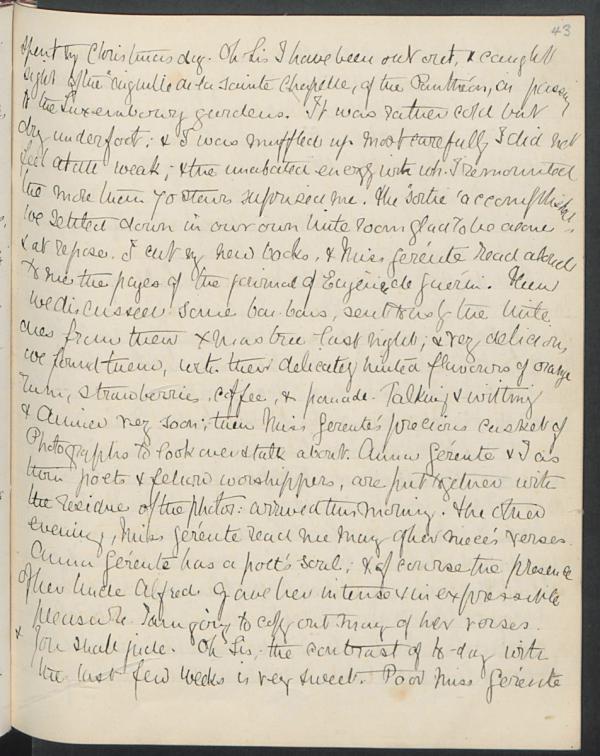 43
spent my Christmas day. Oh Sis I have been out out, & caught
sight of the "aiguille de la Sainte Chapelle, of the Panthéon, in passing
to the Luxembourg gardens. It was rather cold but
dry underfoot; & I was muffled up most carefully I did not
feel at all weak; & the unabated energy with wh. I remounted
the more than 70 stairs surprised me. The "sortie" accomplished,
we settled down in our own little room glad to be alone
& at repose. I cut my new books, & Miss Gerénte read aloud
to me the pages of the journal of Eugénie de Guerin. Then
we discussed some bon-bons, sent to us by the little
ones from their Xmas tree last night; & very delicious
we found them, with their delicately hinted flavours of orange
rum, strawberries, coffee, & panade. Talking & writing
& dinner very soon; then Miss Gerénte's precious casket of
Photographs to look over & talk about. Anna Gérente & I as
twin poets & fellow worshippers, are put together with
the residue of the photos: arrived this morning. The other
evening, Miss Gerénte read me many of her niece's verses.
Anna Gerénte has a poet's soul; & of course the presence
of her Uncle Alfred gave her intense & inexpressible
pleasure. I am going to copy out many of her verses
& you shall judge. Oh Sis, the contrast of to-day with
the last few weeks is very sweet. Poor Miss Gerénte